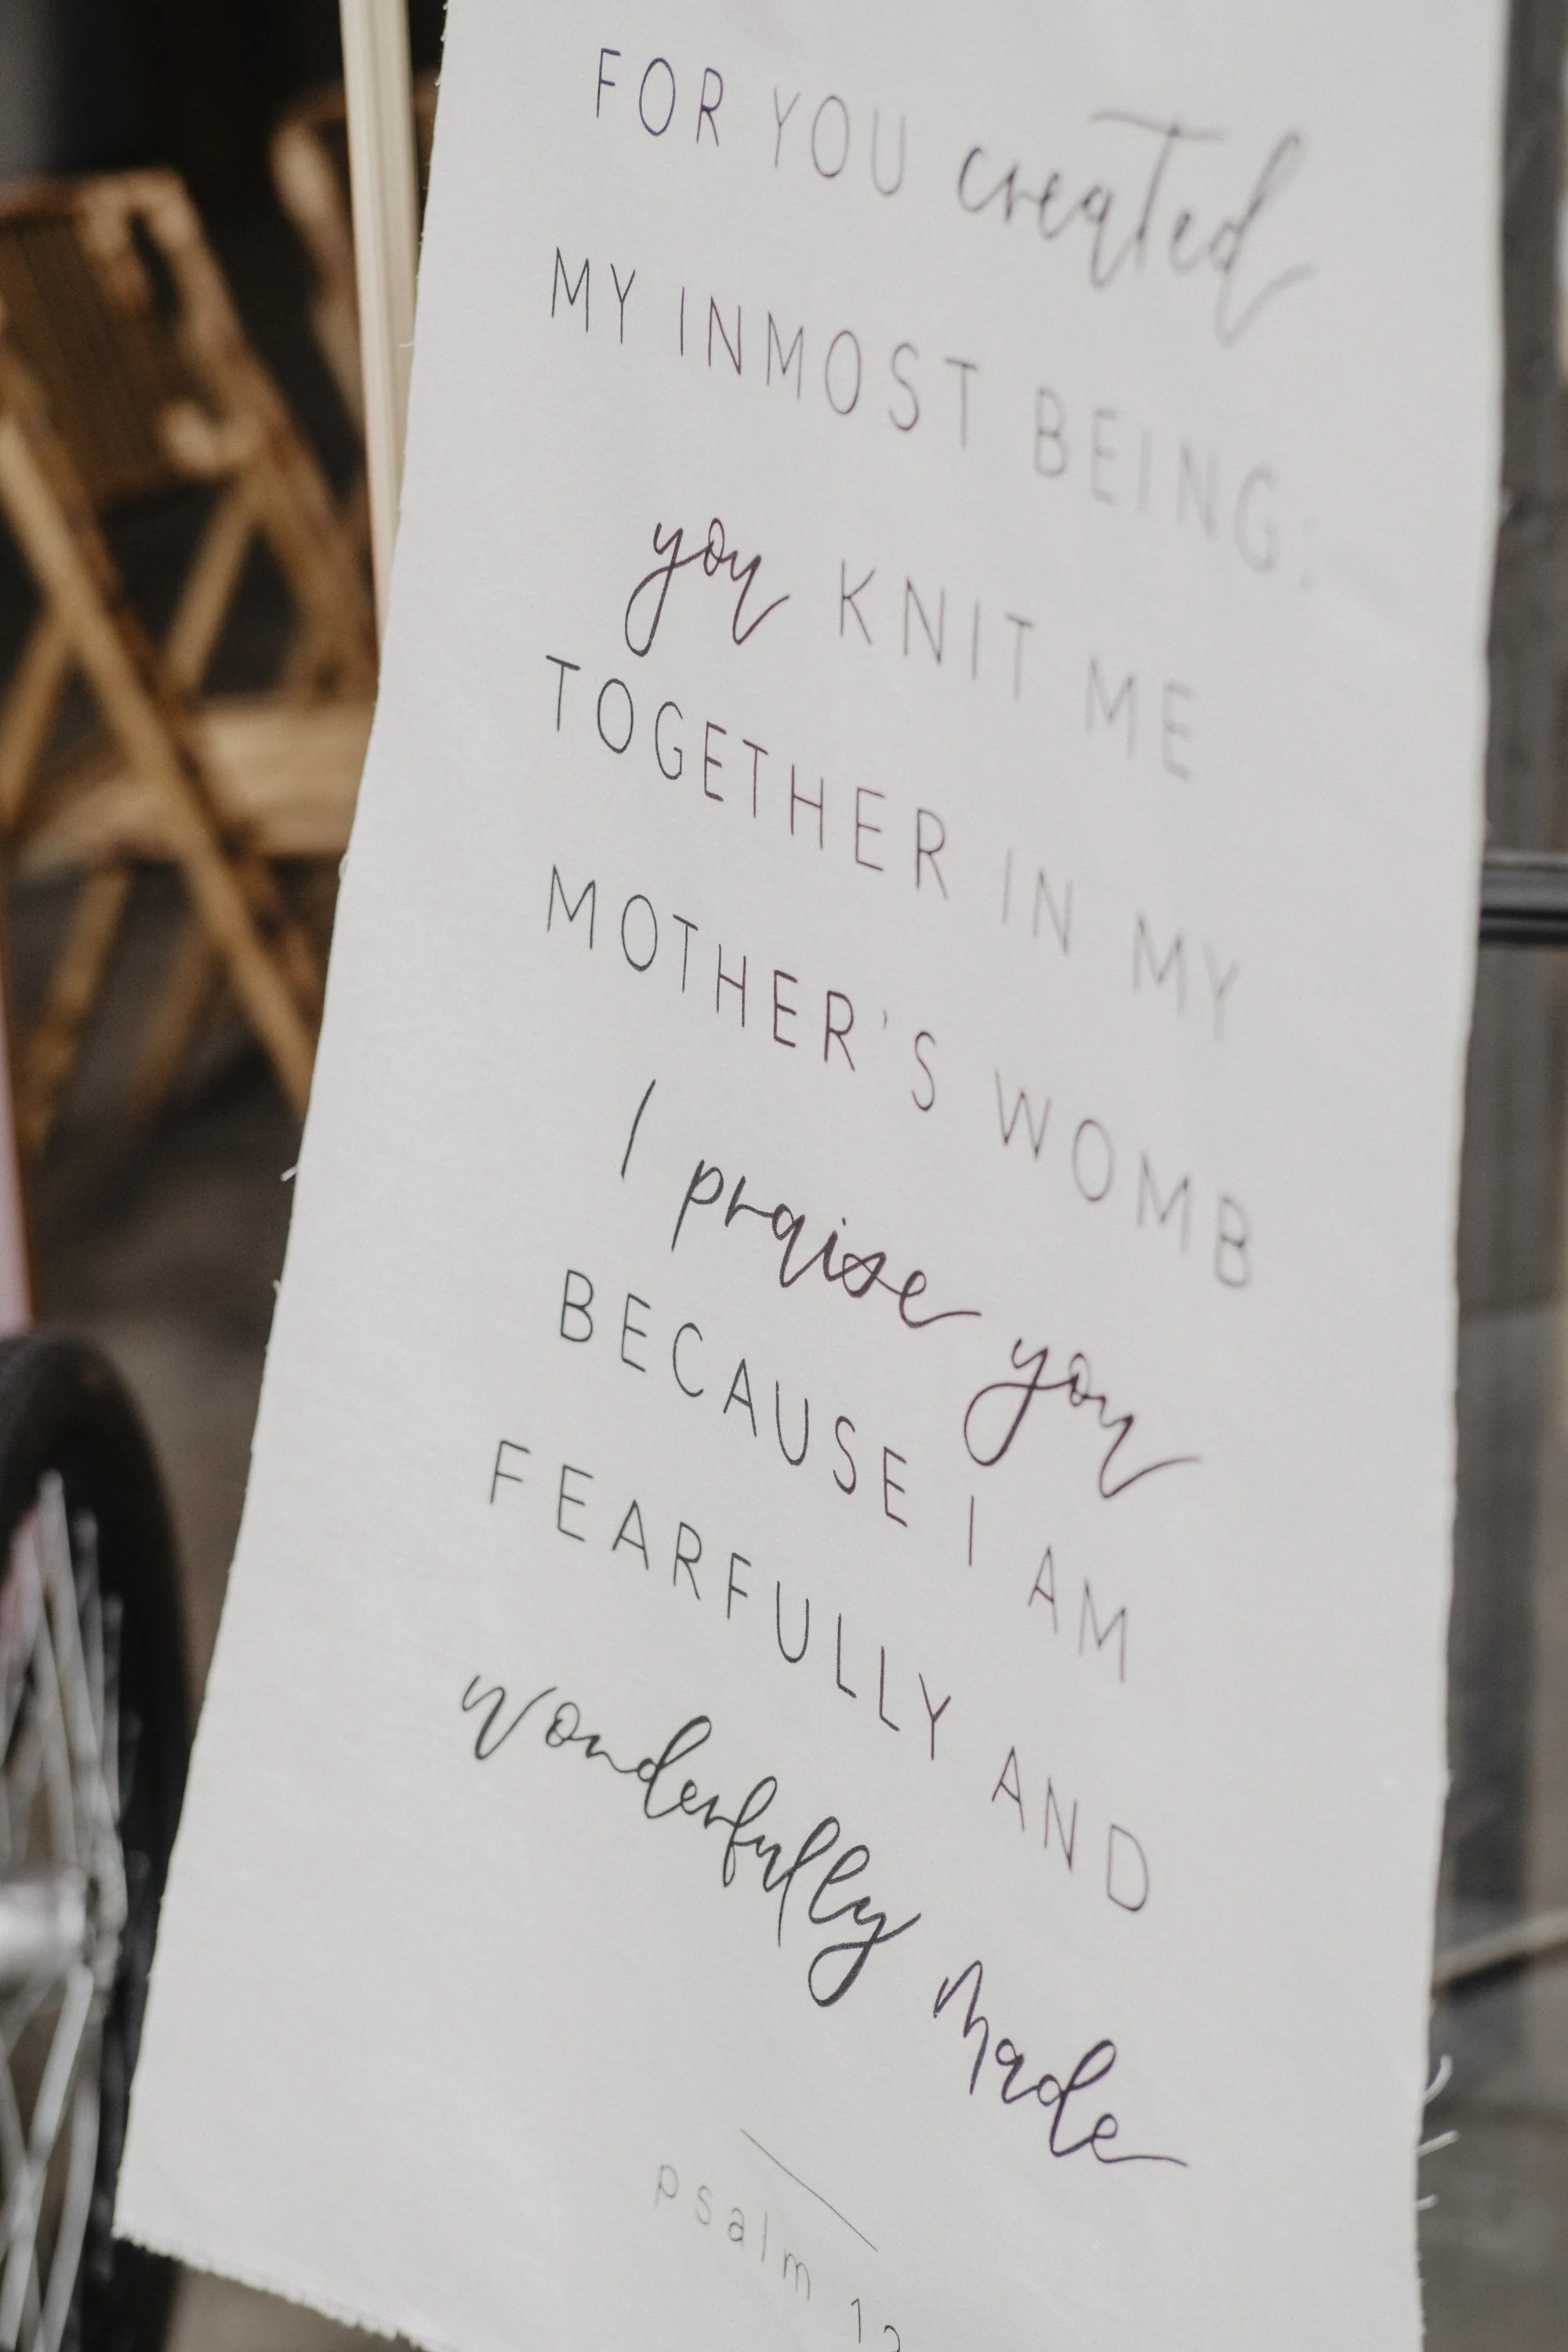 FOR YOU created
MY INMOST BEING:
you KNIT ME
TOGETHER IN MY
MOTHER'S WOMB
I praise you
BECAUSE I AM
FEARFULLY AND
wonderfully made
psalm